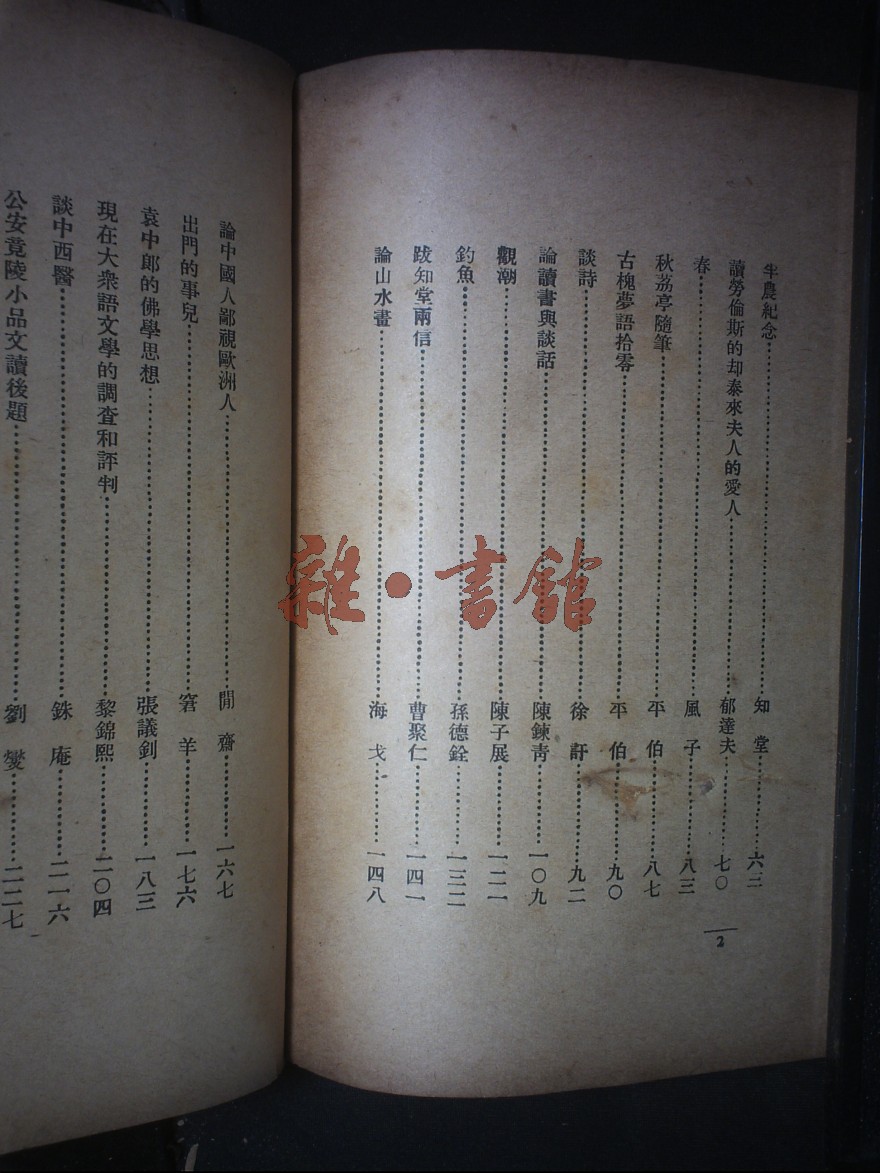 半農紀念……知堂……六二
讀勞倫斯的却泰來夫人的愛人……郁達夫……七〇
春……風子……八三
秋荔亭隨筆……平伯……八七
古槐夢語拾零……平伯……九〇
談詩……徐訏……九二
論讀書與談話……陳鍊靑……一〇九
觀潮……陳子展……一二一
釣魚……孫德銓……一三二
跋知堂兩信……曹聚仁……一四一
論山水畫……海戈……一四八
2
論中國人鄙視歐洲人……閒齋……一六七
出門的事兒……窘羊……一七六
袁中郎的佛學思想……張議釗……一八三
現在大衆語文學的調査和評判……黎錦熙……二〇四
談中西醫……銖庵……二一六
公安竟陵小品文讀後題……劉燮……二二七
雜·書館